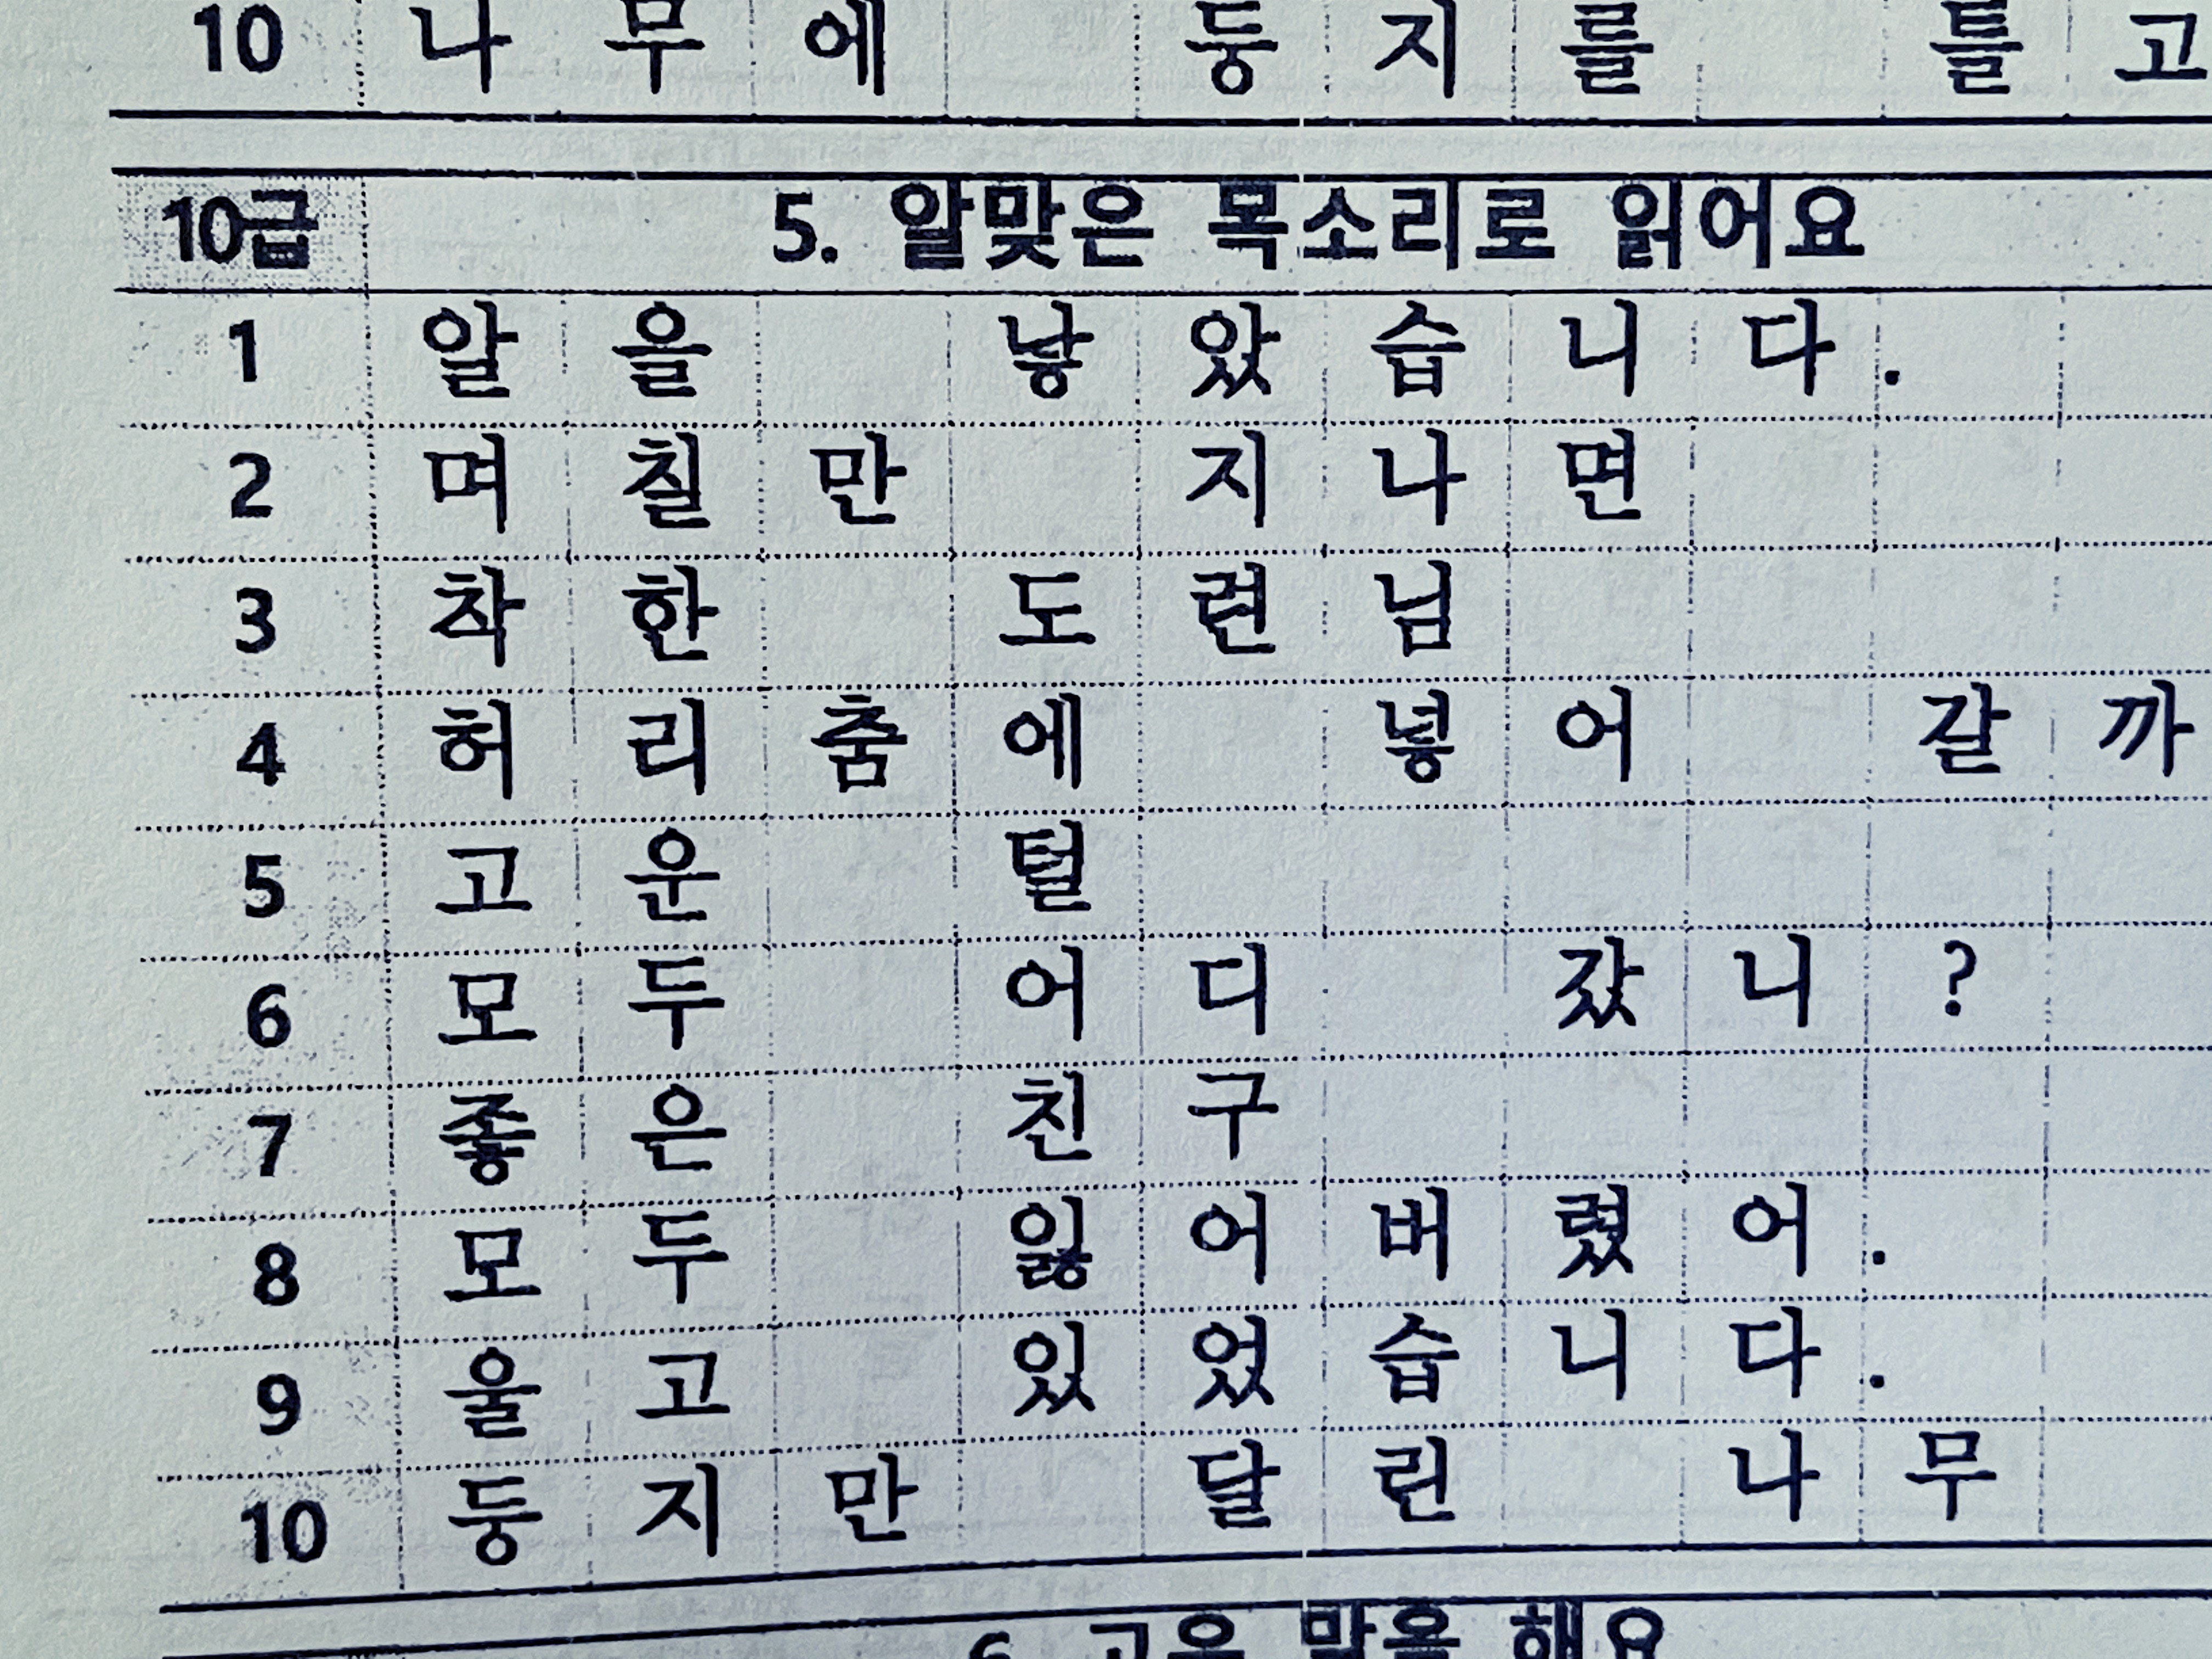 10 나무에 둥지를 틀고
10급 5. 알맞은 목소리로 읽어요
1 알을 낳았습니다.
2 며칠만 지나면
3 착한 도련님
4 허리춤에 넣어 갈까
5 고운 털
6 모두 어디 갔니?
7 좋은 친구
8 모두 잃어버렸어.
9 울고 있었습니다.
10 둥지만 달린 나무
6. 고운 말을 해요